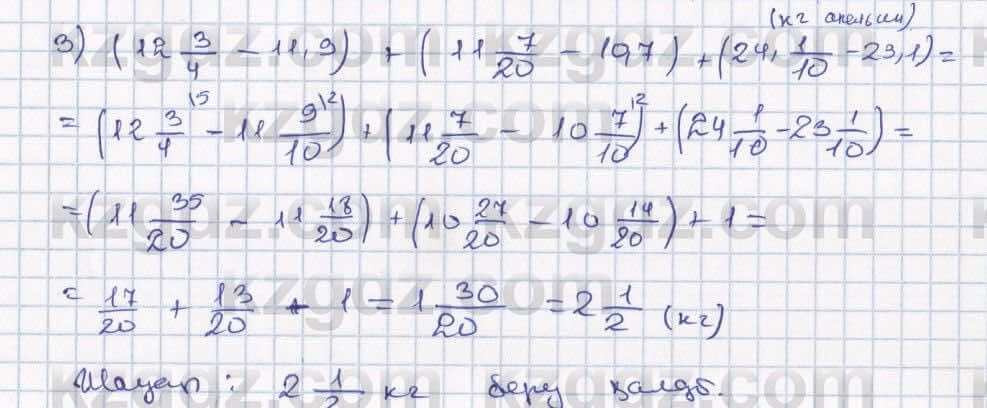 (кг апельсин)
3) (12 3/4 - 11,9) + (11 7/20 - 10,7) + (24, 1/10 - 23,1) =
= (12 3/4 \5 - 11 9/10 \2) + (11 7/20 - 10 7/10 \2) + (24 1/10 - 23 1/10) =
= (11 35/20 - 11 18/20) + (10 27/20 - 10 14/20) + 1 =
= 17/20 + 13/20 + 1 = 1 30/20 = 2 1/2 (кг)
2 1/2 кг беру қалды.
kzgdz.com